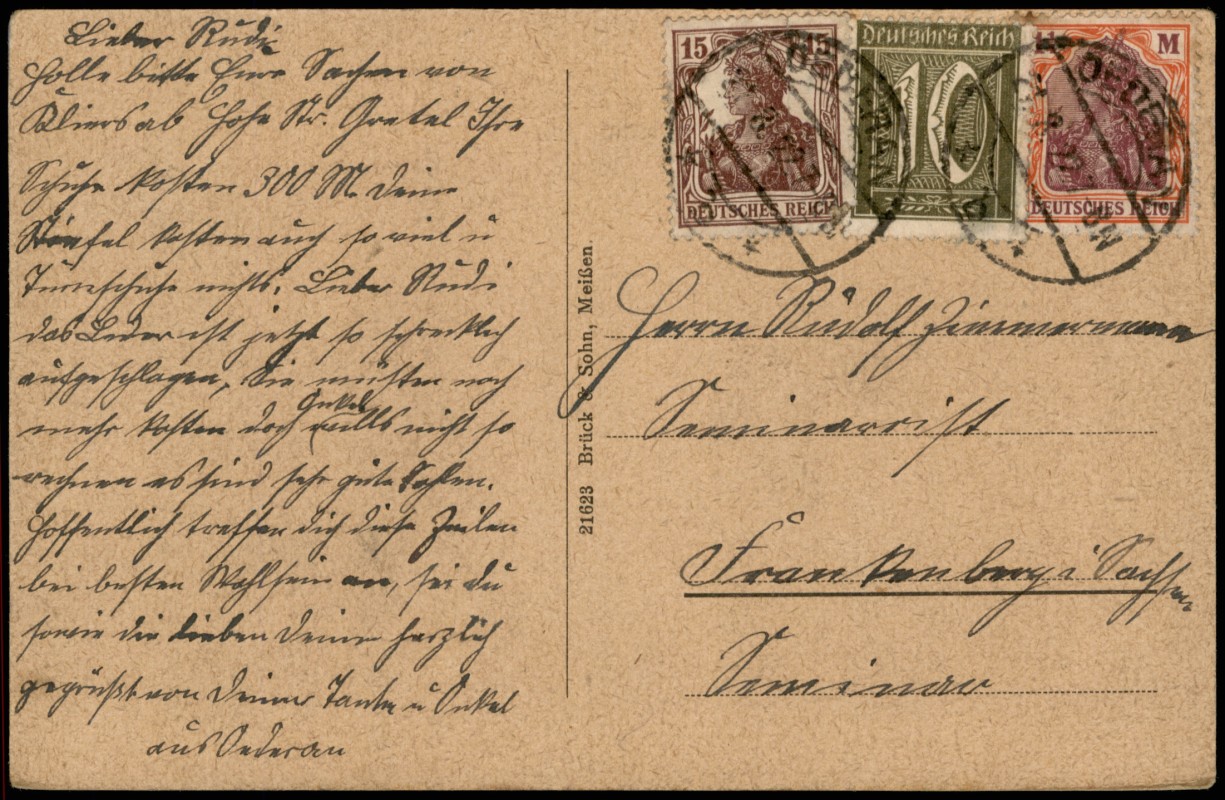 Lieber Rudi
Holle bitte Eure Sachen von
Kliers ab Hohe Str. Gretel Ihre
Schuhe kosten 300 M. Deine
Stiefel kosten auch so viel u
Turnschuhe nichts. Lieber Rudi
das Leder ist jetzt so schrecklich
aufgeschlagen, Sie müßten noch
mehr kosten doch Onkel wills nicht so
rechnen es sind sehr gute Sohlen.
Hoffentlich treffen dich diese Zeilen
bei besten Wohlsein an, sei du
sowie die lieben Deinen herzlich
gegrüßt von Deiner Tante u Onkel
aus Oederan
15 15
DEUTSCHES REICH
Deutsches Reich
10
M
DEUTSCHES REICH
OEDERAN
OEDERAN
21623 Brück & Sohn, Meißen
Herrn Rudolf Zimmermann
Seminarist
Frankenberg i Sachsen
Seminar